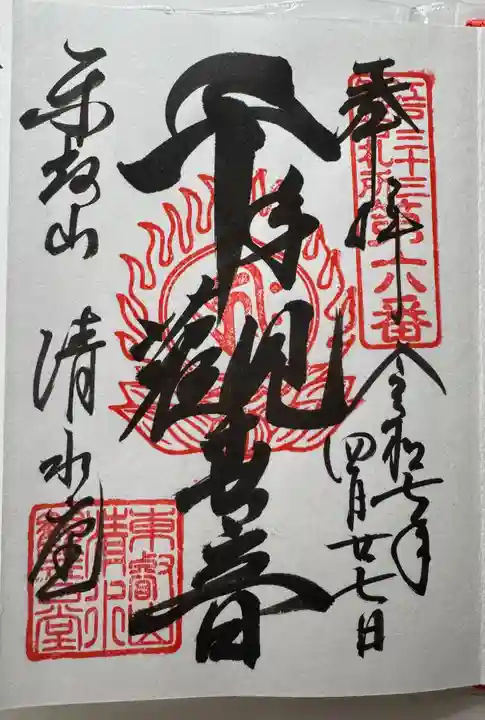 江戸三十三
札所第六番
奉拝
令和七年
四月廿七日
千手觀世音
東叡山 清水堂
東叡山
清水